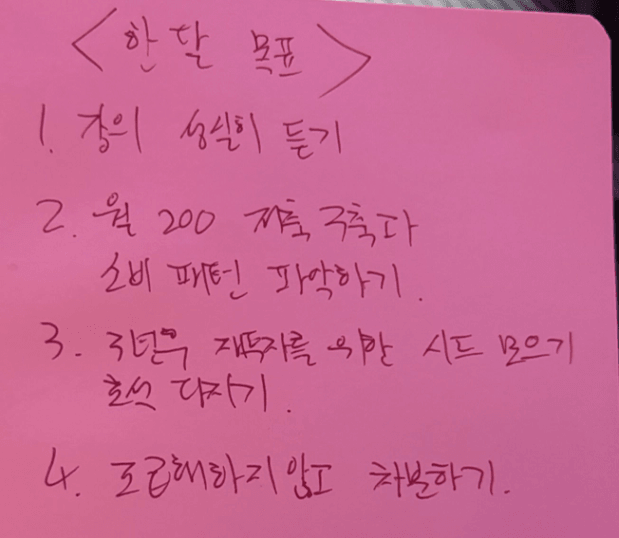 <한 달 목표>
1. 강의 성실히 듣기
2. 월 200 저축 구축과
소비 패턴 파악하기.
3. 3년후 재투자를 위한 시드 모으기
초석 다지기.
4. 조급해하지않고 차분하기.